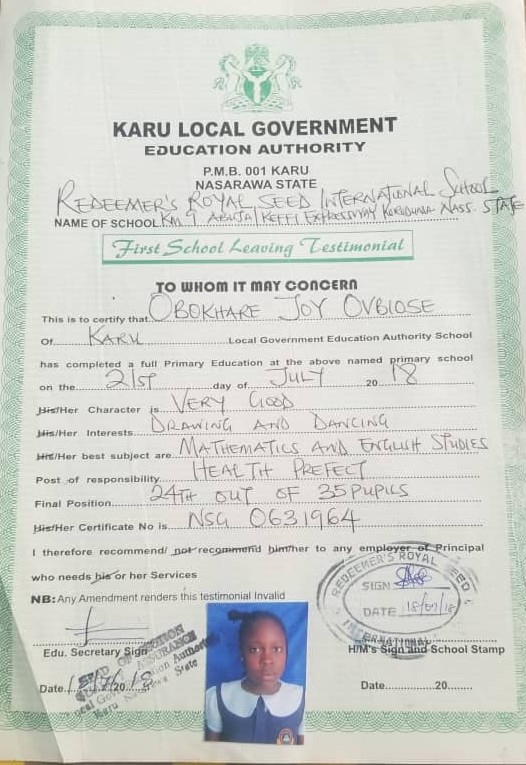 KARU LOCAL GOVERNMENT
EDUCATION AUTHORITY
P.M.B. 001 KARU
NASARAWA STATE
REDEEMER'S ROYAL SEED INTERNATIONAL SCHOOL
NAME OF SCHOOL KM 9 ABUJA/KEFFI EXPRESSWAY NASS. STATE
First School Leaving Testimonial
TO WHOM IT MAY CONCERN
This is to certify that OBOKHARE JOY OVBIOSE
Of KARU Local Government Education Authority School
has completed a full Primary Education at the above named primary school
on the 21ST day of JULY 2018
His/Her Character is VERY GOOD
His/Her Interests DRAWING AND DANCING
His/Her best subject are MATHEMATICS AND ENGLISH STUDIES
Post of responsibility HEALTH PREFECT
Final Position 24TH OUT OF 35 PUPILS
His/Her Certificate No is NSG 0631964
I therefore recommend/ not recommend him/her to any employer of Principal
who needs his or her Services
NB: Any Amendment renders this testimonial Invalid
REDEEMER'S ROYAL SEED
SIGN
DATE 18/07/18
INTERNATIONAL
Edu. Secretary Sign
H/M's Sign and School Stamp
Date 2018
Karu Nasarawa State
Date 20